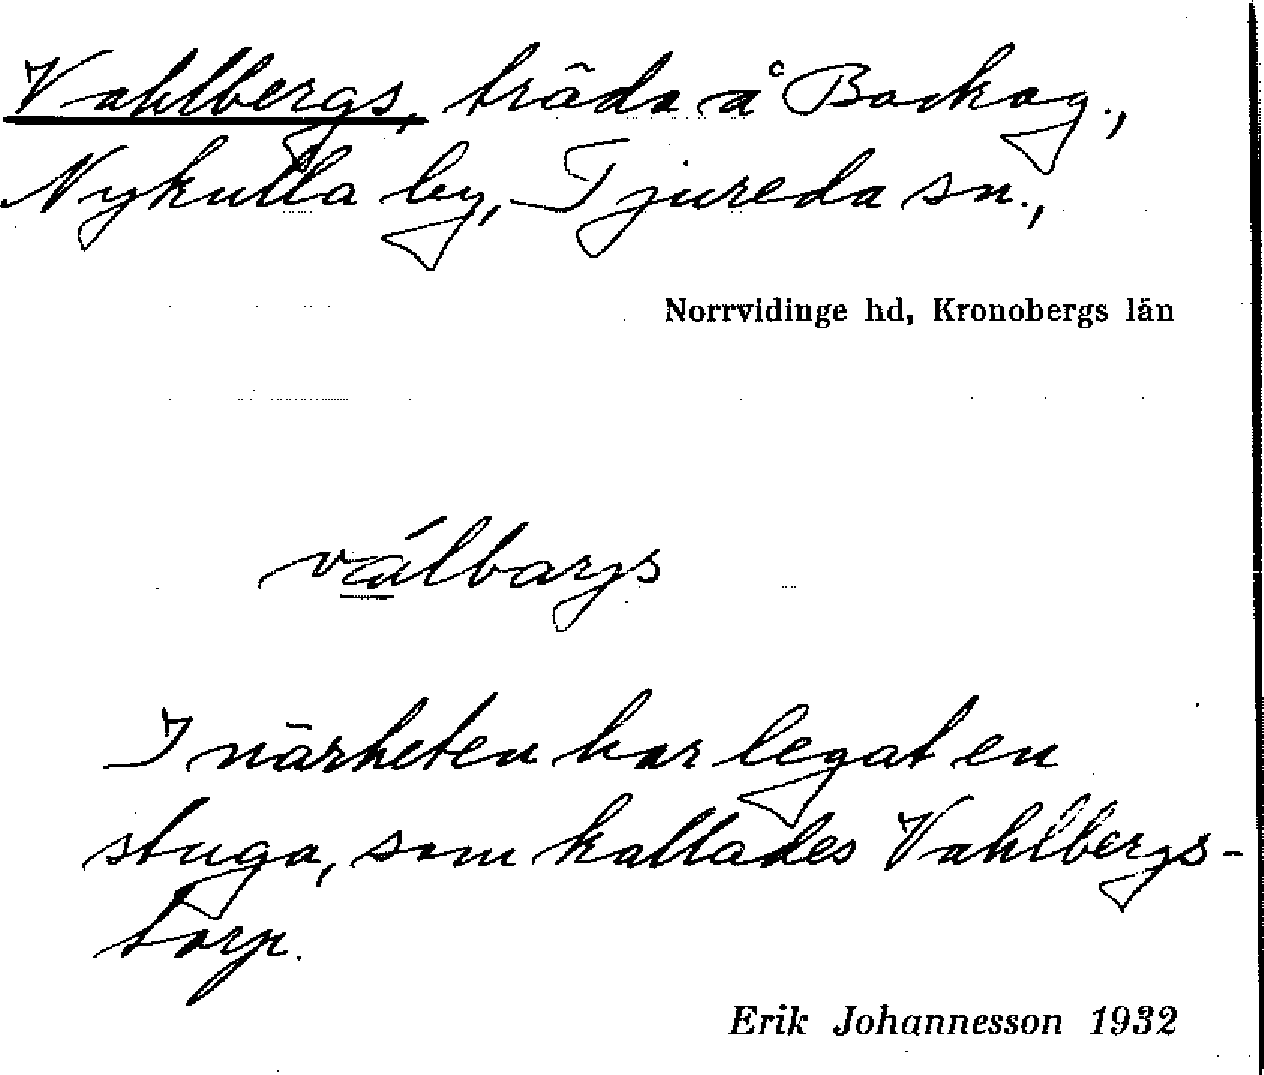 Vahlbergs, träda å Backag.,
Nykulla by, Tjureda sn.,
Norrvidinge hd, Kronobergs län
válbargs
I närheten har legat en
stuga, som kallades Vahlbergs-
torp.
Erik Johannesson 1932